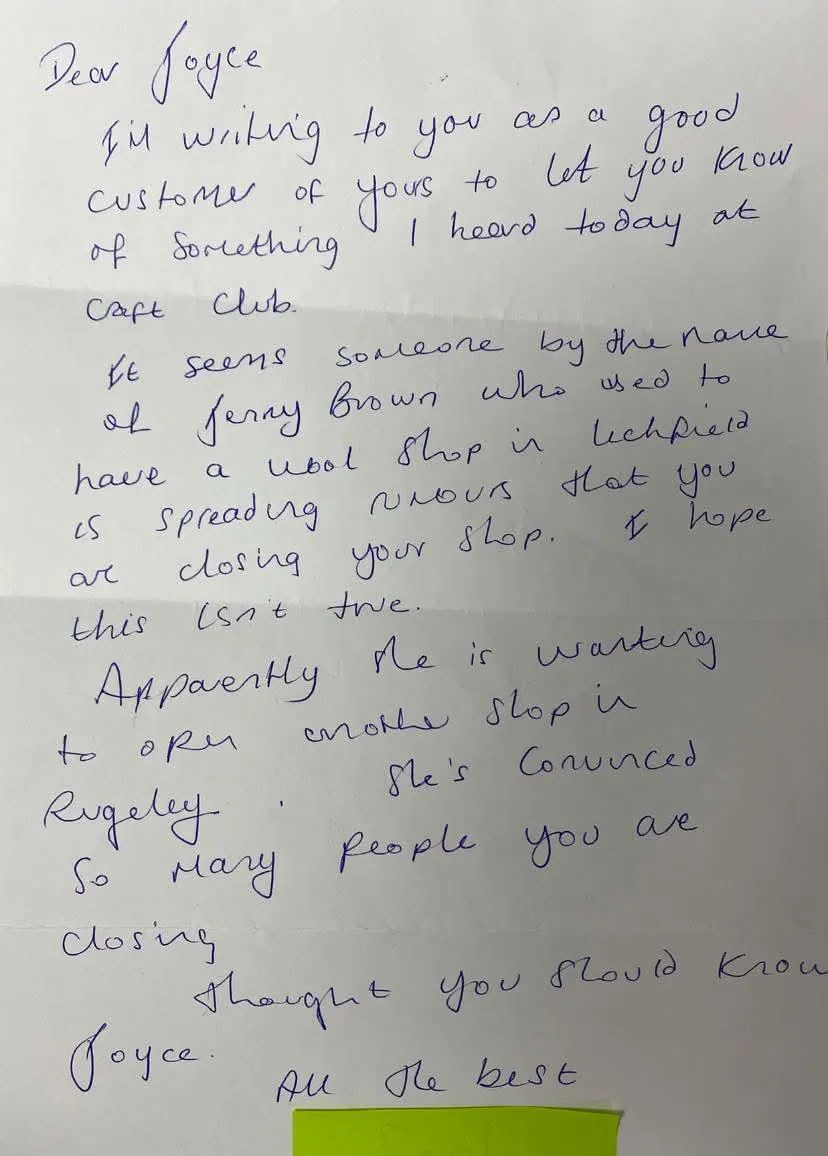 Dear Joyce
I'M writing to you as a good
customer of yours to let you know
of something I heard today at
craft club.
It seems someone by the name
of Jenny Brown who used to
have a wool shop in Lichfield
is spreading rumours that you
are closing your shop. I hope
this isn't true.
Apparently she is wanting
to open another shop in
Rugeley. She's convinced
so many people you are
closing
thought you should know
Joyce.
All the best